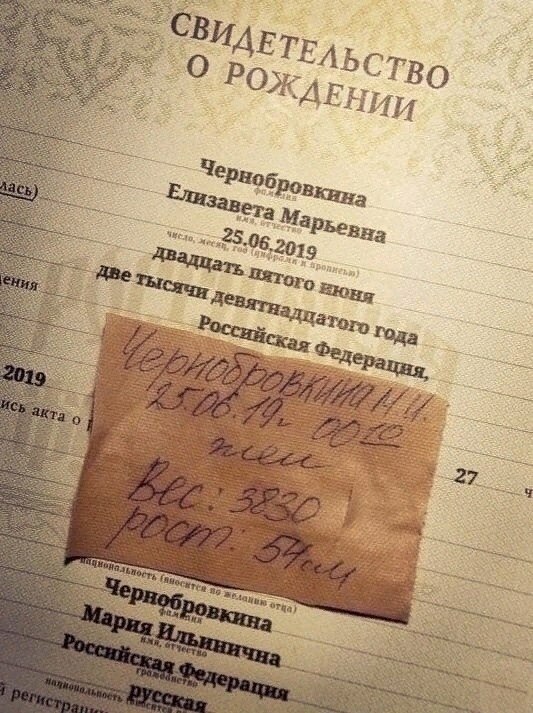 СВИДЕТЕЛЬСТВО
О РОЖДЕНИИ
Чернобровкина
фамилия
лась)
Елизавета Марьевна
имя, отчество
25.06.2019
число, месяц, год (цифрами и прописью)
двадцать пятого июня
две тысячи девятнадцатого года
дения
Российская Федерация,
Чернобровкина М И.
25.06.19г 00 10
жен
Вес: 3830
рост: 54см
2019
ись акта о
27
национальность (вносится по желанию отца)
Чернобровкина
фамилия
Мария Ильинична
имя, отчество
Российская Федерация
гражданство
русская
национальность (вносится
й регистрации